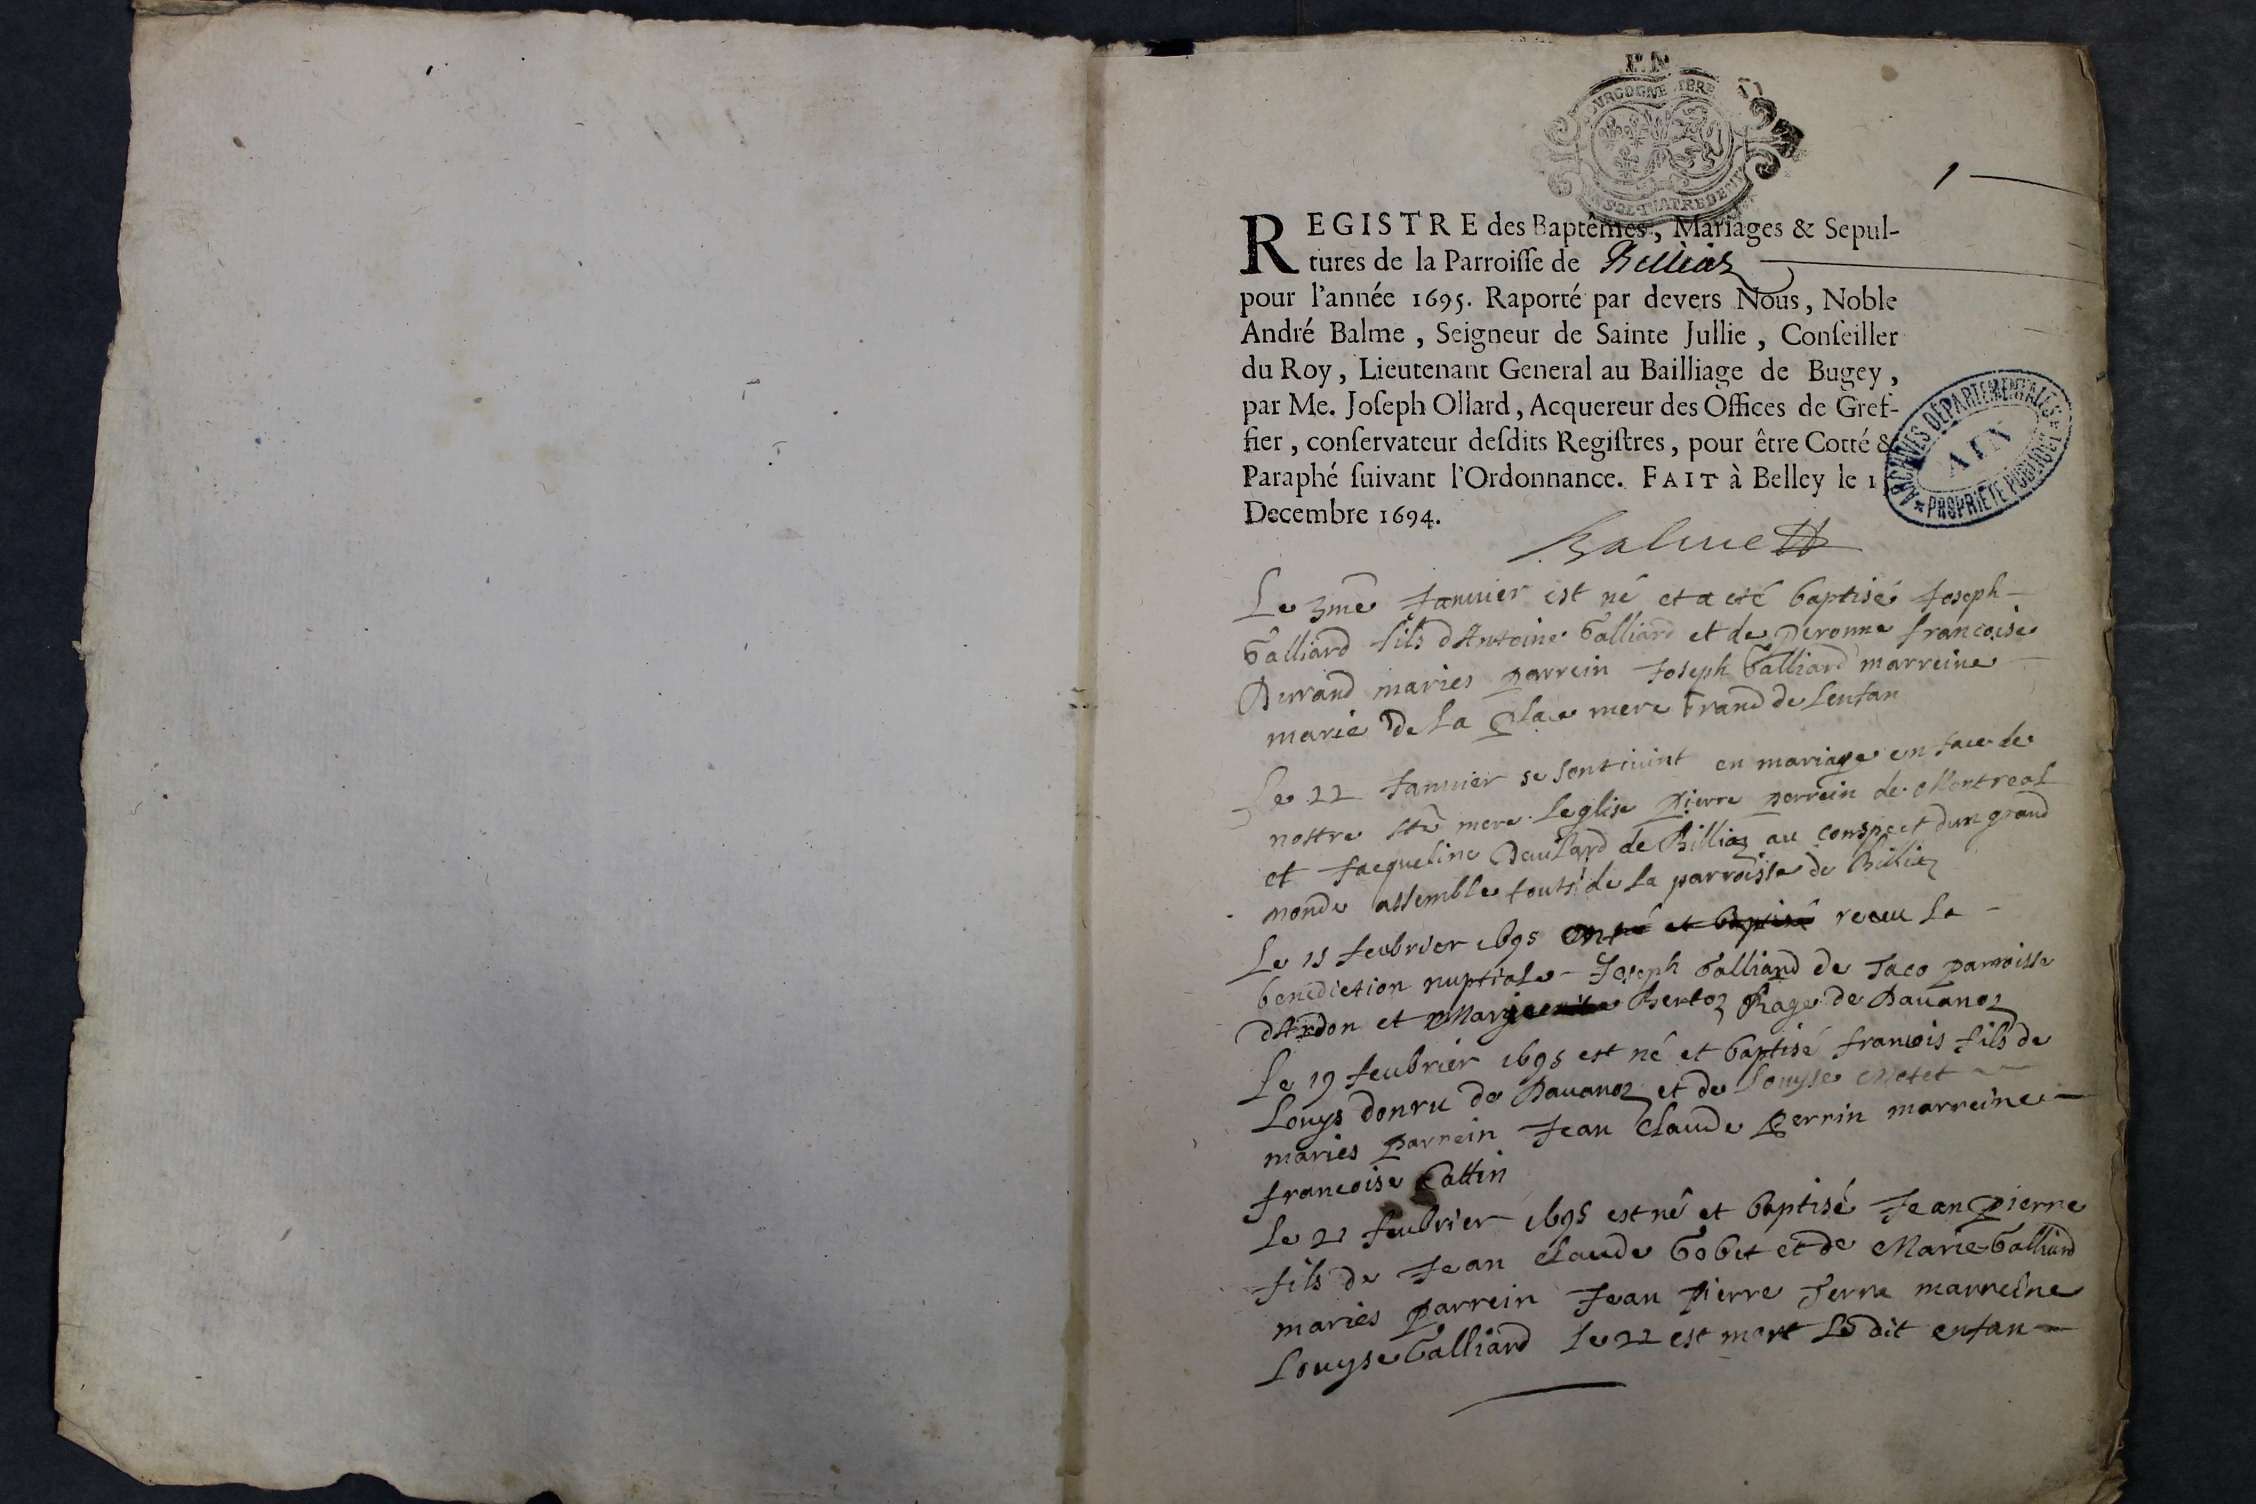 BOURGOGNE BRE
QUATRE DENI
1
REGISTRE des Baptêmes, Mariages & Sepul-
tures de la Parroisse de Billiaz
pour l'année 1695. Raporté par devers Nous, Noble
André Balme, Seigneur de Sainte Jullie, Conseiller
du Roy, Lieutenant General au Bailliage de Bugey,
par Me. Joseph Ollard, Acquereur des Offices de Gref-
fier, conservateur desdits Registres, pour être Cotté &
Paraphé suivant l'Ordonnance. FAIT à Belley le 1
Decembre 1694.
ARCHIVES DÉPARTEMENTALES
AIN
PROPRIÉTÉ PUBLIQUE
Balme
Le 3me Januier est né et a eté baptisé Joseph
Galliard fils d'Antoine Galliard et de Peronne francoise
Durrand mariés parrein Joseph Galliard marreine
marie De la place mere Grand de Lenfan
Le 22 Januier se sont iuint en mariage en face de
nostre Ste mere Leglise Pierre perrein de Montreal
et Jacqueline de Billiaz au conspect dun grand
monde assemble touts de la parroisse de Billiaz
Le 15 feubrier 1695 est né et baptisé receu la
benediction nuptiale Joseph Galliand de Jaco parroisse
dArdon et Marie Bertoz Rage de Dauanoz
Le 19 feubrier 1695 est né et baptisé francois fils de
Louys donru de Dauanoz et de Louyse Motet
mariés parrein Jean Claude Perrin marreine
francoise Cattin
Le 21 feubrier 1695 est né et baptisé Jean Pierre
fils de Jean Claude Gobet et de Marie Galliard
mariés parrein Jean Pierre Jerra marreine
Louyse Galliard le 22 est mort Le dit enfan